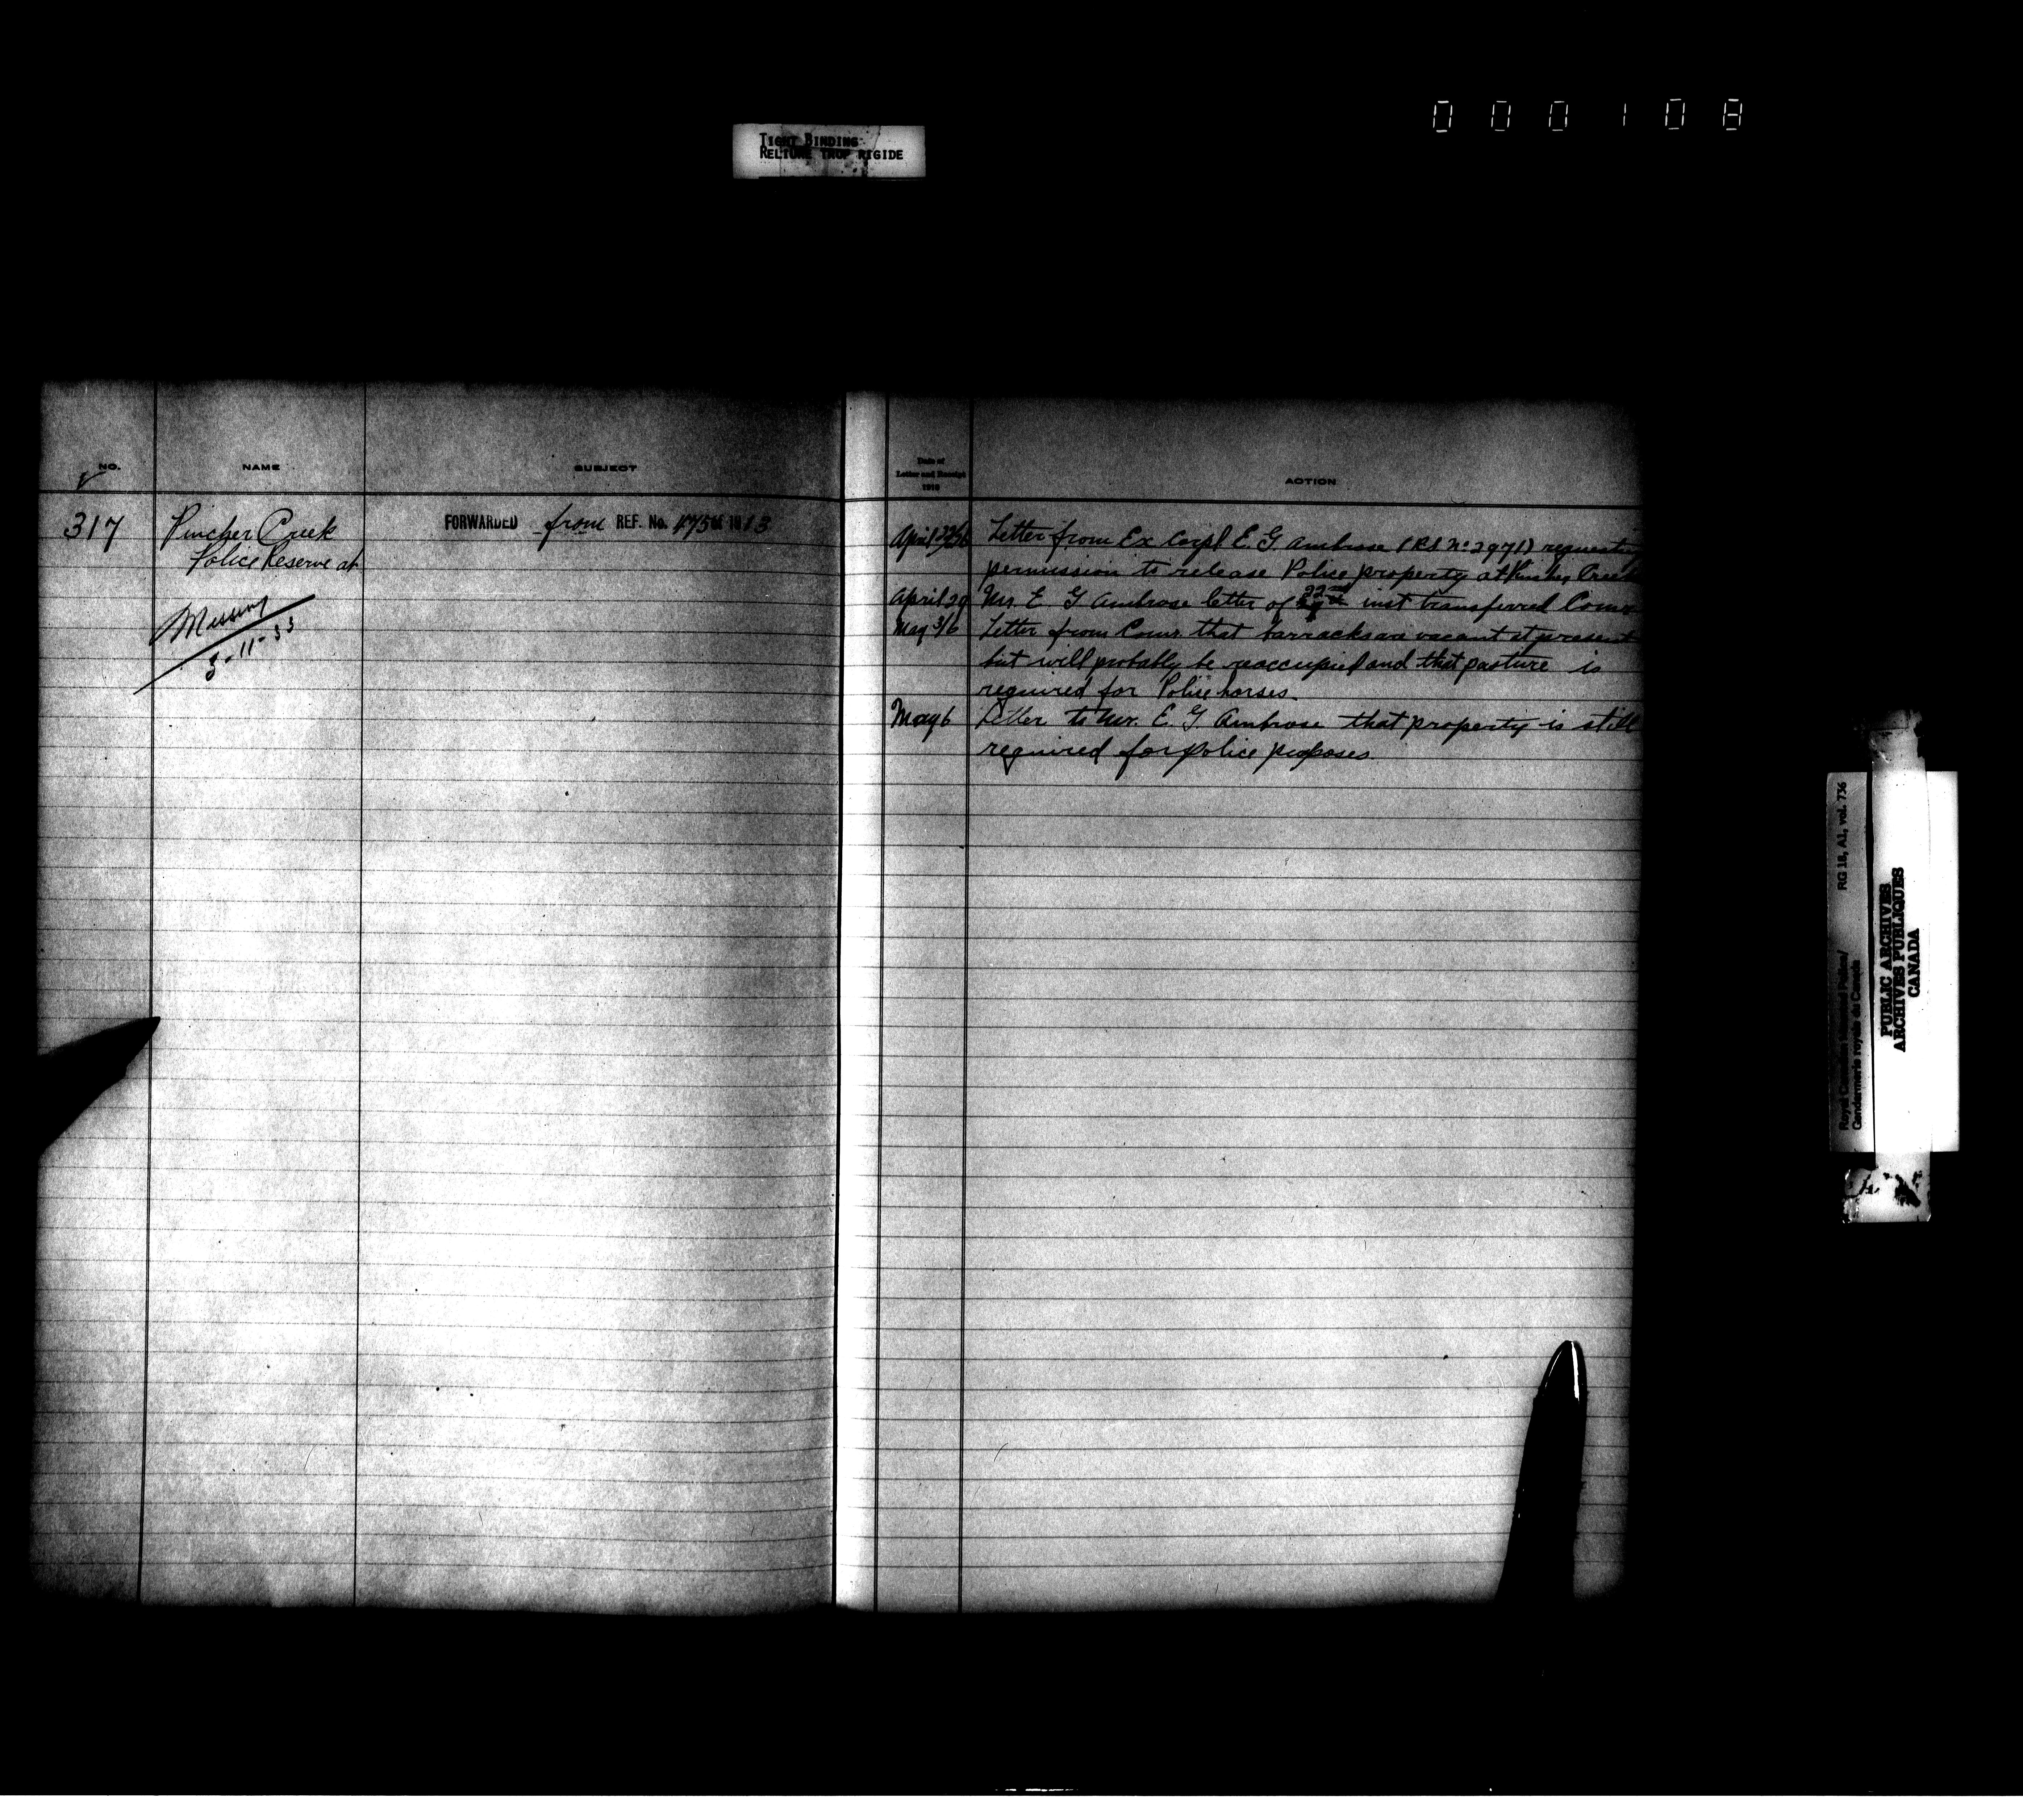 000108
TIGHT BINDING
RELIURE TROP RIGIDE
NO.
NAME
SUBJECT
Date of
Letter and Receipt
1916
ACTION
317
Pincher Creek
Police Reserve at
Missing
3-11-33
FORWARDED from REF. No. 475 of 1913
April Letter from Ex Corpl. E. G. Ambrose (Rl No 2971)
permission to release Police property at Pincher Creek
April 29 Mr. E G Ambrose letter of 22nd inst transferred Comr
May 3/6 Letter from Comr. that barracks are vacant at present
but will probably be reoccupied and that pasture is
required for Police horses.
May 6 Letter to Mr. E. G Ambrose that property is still
required for police purposes.
RG 18, A1, vol. 736
Royal Canadian Mounted Police/
Gendarmerie royale du Canada
PUBLIC ARCHIVES
ARCHIVES PUBLIQUES
CANADA